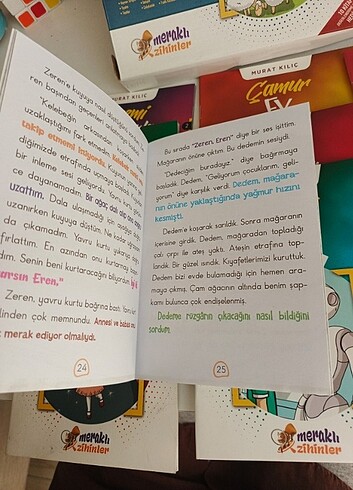 meraklı
zihinler
MURAT KILIÇ
Çamur
EV
Zeren'e kuyuya nasıl düştüğünü
ren başından geçenleri anlatmaya
"Kelebeğin arkasından
uzaklaştığımı fark etmemişim.
takip etmemi istiyordu. Kelebek
diğimizde etrafında uçmaya başladı.
bir inleme sesi geliyordu. Yavru
ce dayanamadım. Bir ağaç dalı alıp
uzattım. Dala ulaşmadığı için
uzanırken kuyuya düştüm. Ne kadar
da çıkamadım. Yavru kurtu yukarıya
fırlattım. En azından onu kurtarmayı
dım. Senin beni kurtaracağını biliyordum
ursun Eren."
Zeren, yavru kurtu bağrına bastı. Yavru kurt
linden çok memnundu. Annesi ve babası onu
k merak ediyor olmalıydı.
24
Bu sırada "Zeren, Eren" diye bir ses işittim.
Mağaranın önüne çıktım. Bu dedemin sesiydi.
"Dedeciğim buradayız." diye bağırmaya
başladık. Dedem, "Geliyorum çocuklarım, geli-
yorum" diye karşılık verdi. Dedem, mağara-
nın önüne yaklaştığında yağmur hızını
kesmişti.
Dedem'e koşarak sarıldık. Sonra mağaranın
içerisine girdik. Dedem, mağaradan topladığı
çalı çırpı ile ateş yaktı. Ateşin etrafına top-
landık. Bir güzel ısındık. Kıyafetlerimizi kuruttuk.
Dedem bizi evde bulamadığı için hemen ara-
maya çıkmış. Çam ağacının altında benim şap-
kamı bulunca çok endişelenmiş.
Dedeme rüzgârın çıkacağını nasıl bildiğini
sordum.
25
meraklı
zihinler
meraklı
zihinler